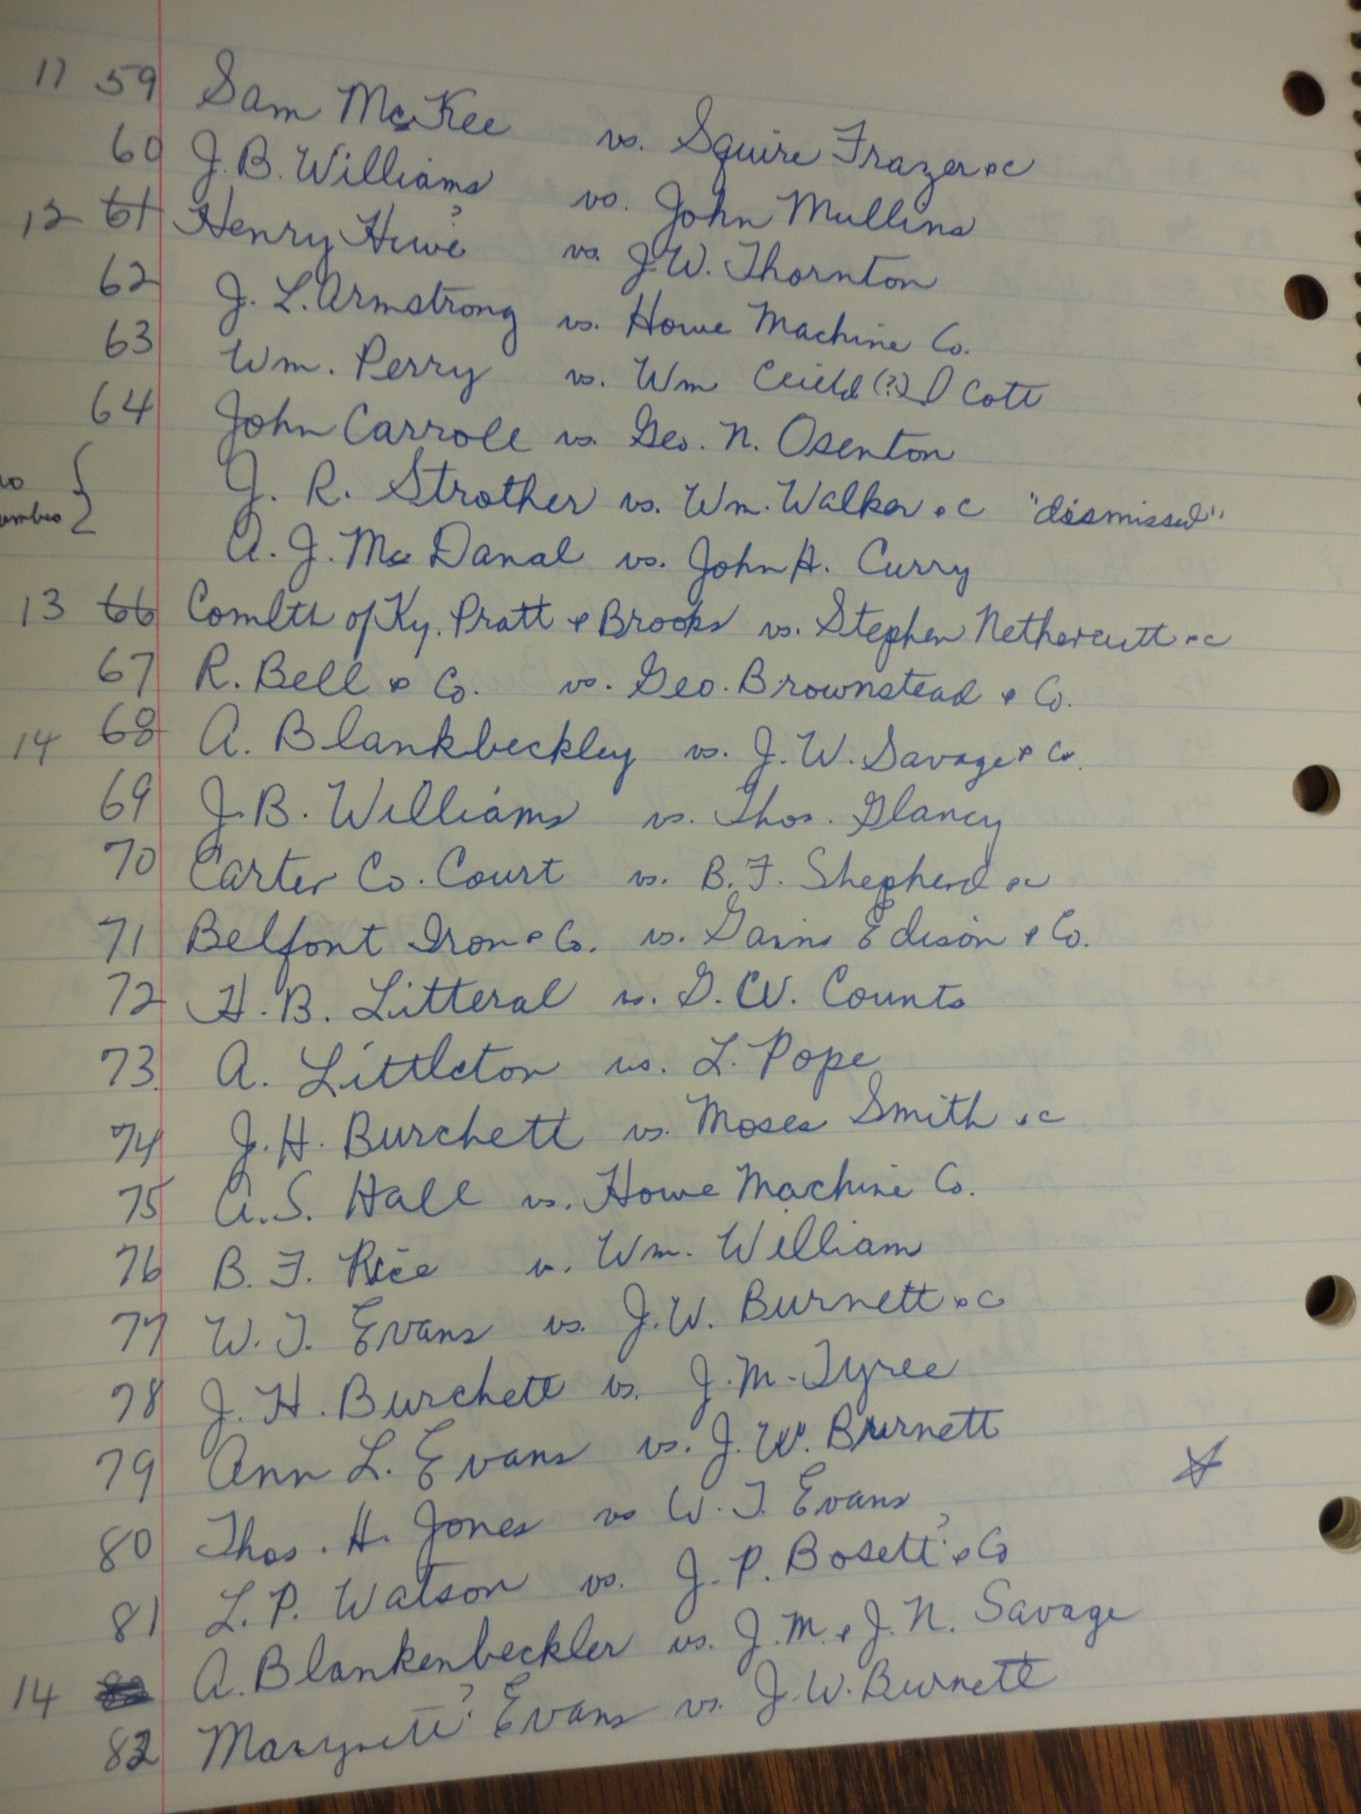 11 59 Sam McKee vs. Squire Frazer &c
60 J. B. Williams vs. John Mullins
12 61 Henry Hiwe? vs. J. W. Thornton
62 J. L. Armstrong vs. Howe Machine Co.
63 Wm. Perry vs. Wm (?) Cott
64 John Carroll vs. Geo. N. Osenton
J. R. Strother vs. Wm. Walker &c "dismissed"
A. J. McDanal vs. John H. Curry
13 66 Comlth of Ky. Pratt & Brooks vs. Stephen Nethercutt &c
67 R. Bell & Co. vs. Geo. Brownstead & Co.
14 68 A. Blankbeckley vs. J. W. Savage & Co.
69 J. B. Williams vs. Thos. Glancy
70 Carter Co. Court vs. B. F. Shepherd &c
71 Belfont Iron & Co. vs. Gains Edison & Co.
72 H. B. Litteral vs. G. W. Counts
73. A. Littleton vs. L. Pope
74 J. H. Burchett vs. Moses Smith &c
75 A. S. Hall vs. Howe Machine Co.
76 B. F. Rice v. Wm. William
77 W. T. Evans vs. J. W. Burnett &c
78 J. H. Burchett vs. J. M. Tyree
79 Ann L. Evans vs. J. W. Burnett
80 Thos. H. Jones vs W. T. Evans
81 L. P. Watson vs. J. P. Bosett? & Co
14 A. Blankenbeckler vs. J. M. & J. N. Savage
82 Evans vs. J. W. Burnett